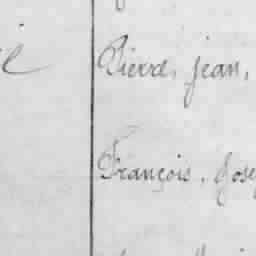 Pierre, jean,
François, Jose